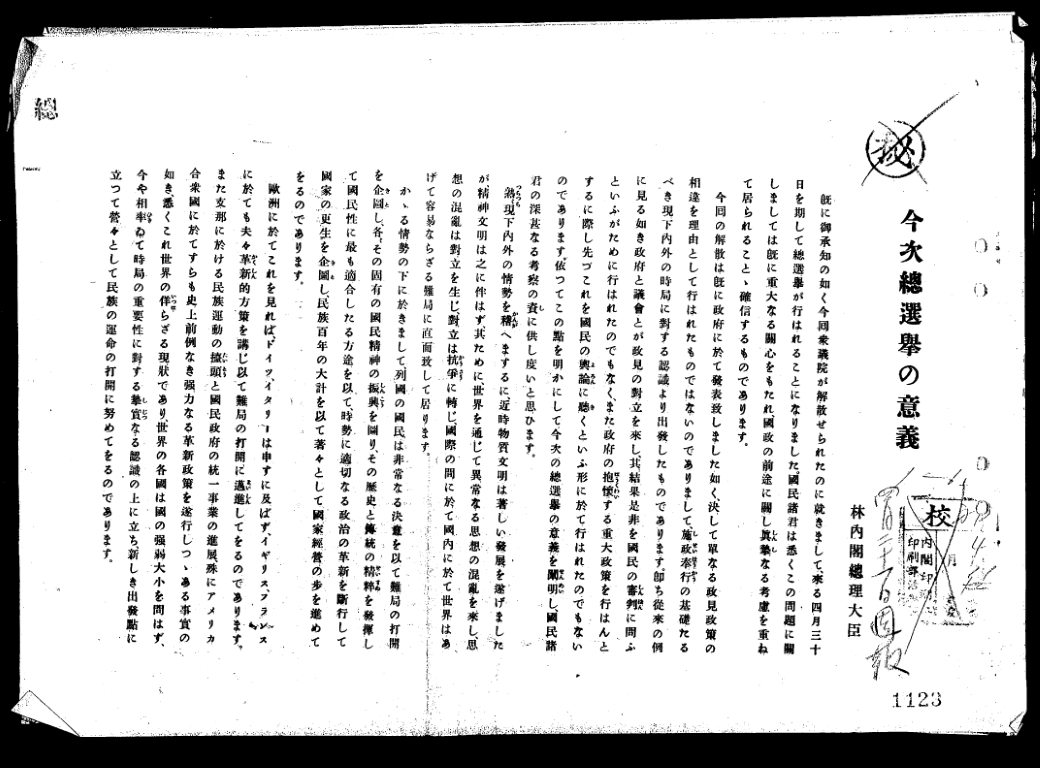 秘
今次總選擧の意義
林內閣總理大臣
旣に御承知の如く今回衆議院が解散せられたのに就きまして、來る四月三十
日を期して總選擧が行はれることになりました。國民諸君は悉くこの問題に關
しましては旣に重大なる關心をもたれ、國政の前途に關し眞摯なる考慮を重ね
て居られること丶確信するものであります。
今回の解散は旣に政府に於て發表致しました如く、決して單なる政見政策の
相違を理由として行はれたものではないのでありまして、施政奉行の基礎たる
べき現下內外の時局に對する認識より出發したものであります。卽ち從來の例
に見る如き政府と議會とが政見の對立を來し、其結果是非を國民の審判に問ふ
といふがために行はれたのでもなく、また政府の抱懷する重大政策を行はんと
するに際し先づこれを國民の輿論に聽くといふ形に於て行はれたのでもない
のであります。依つてこの點を明かにして今次の總選擧の意義を闡明し、國民諸
君の深甚なる考察の資に供し度いと思ひます。
熟〻現下內外の情勢を稽へまするに近時物質文明は著しい發展を遂げました
が精神文明は之に伴はず其ために世界を通じて異常なる思想の混亂を來し、思
想の混亂は對立を生じ、對立は抗爭に轉じ、國際の間に於て國內に於て世界はあ
げて容易ならざる難局に直面致して居ります。
か丶る情勢の下に於きまして列國の國民は非常なる決意を以て難局の打開
を企圖し、各〻その固有の國民精神の振興を圖り、その歷史と傳統の精粹を發揮し
て國民性に最も適合したる方途を以て、時勢に適切なる政治の革新を斷行して
國家の更生を企圖し、民族百年の大計を以て著々として國家經營の步を進めて
をるのであります。
歐洲に於てこれを見ればドイツ、イタリーは申すに及ばず、イギリス、フランス
に於ても夫々革新的方策を講じ以て難局の打開に邁進してをるのであります。
また支那に於ける民族運動の擡頭と國民政府の統一事業の進展、殊にアメリカ
合衆國に於てすらも史上前例なき强力なる革新政策を遂行しつ丶ある事實の
如き、悉くこれ世界の佯らざる現狀であり、世界の各國は國の强弱大小を問はず、
今や相率ゐて時局の重要性に對する摯實なる認識の上に立ち新しき出發點に
立つて營々として民族の運命の打開に努めてをるのであります。
總
校
內閣印
印刷部
月
四月二十一日週報
1123